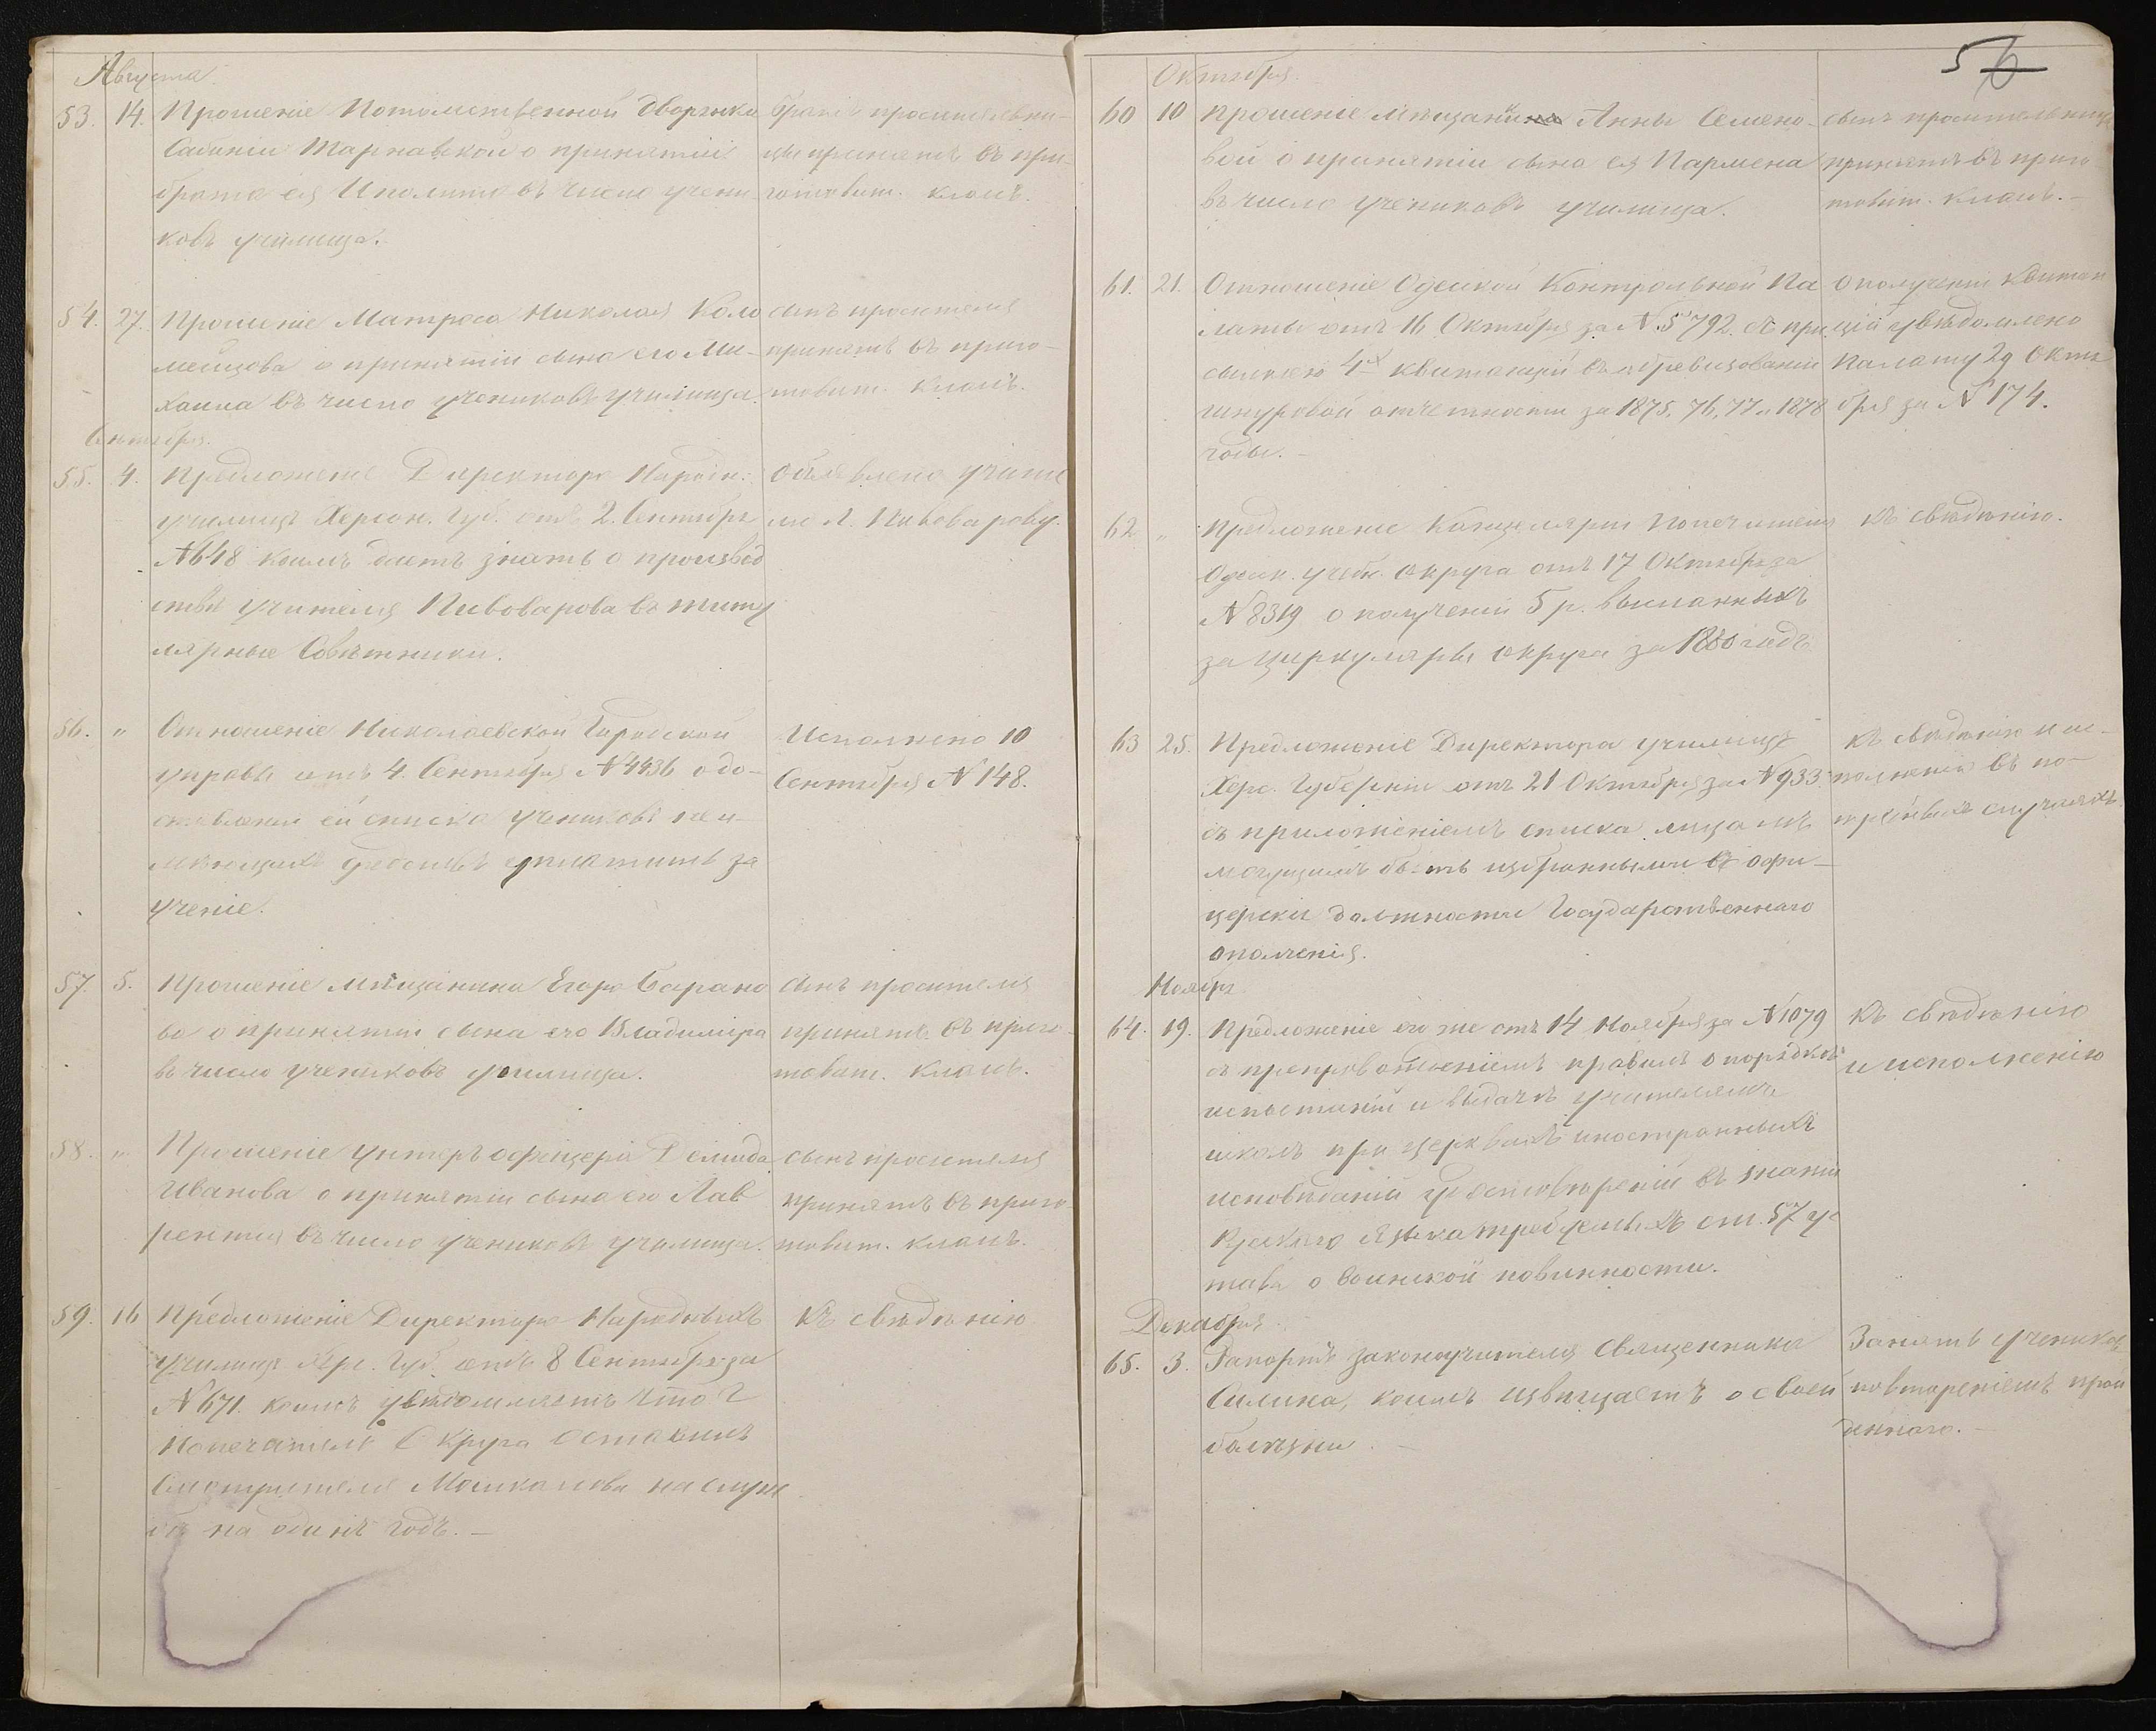 Августа.
53. 14. Прошеніе Потомственной дворянки
Тарнавской о принятіи
брата ея Иполита въ число учени
ковъ училища.
братъ просительни-
цы принятъ въ при-
готовит. классъ.
54. 27. Прошеніе Матроса Николая Коло
мейцова о принятіи сына его Ми-
хаила въ число учениковъ училища.
сынъ просителя
принятъ въ приго-
товит. классъ.
Сентября.
55. 4. Предложеніе Директора Народн.
училищъ Херсон. Губ. отъ 2. Сентября
№648 коимъ даетъ знать о произвед
ствѣ учителя Пивоварова въ титу
лярные Совѣтники.
Объявлено учите
лю Л. Пивоварову.
56. " Отношеніе Николаевской Городской
управы отъ 4. Сентября №4436 о до-
ставленіи ей списка учениковъ неи-
мѣющихъ уплатить за
ученіе.
Исполнено 10
Сентября №148.
57. 5. Прошеніе мѣщанина Егора Барано
ва о принятіи сына его Владиміра
въ число учениковъ училища.
сынъ просителя
принятъ въ приго-
товит. классъ.
58. " Прошеніе унтеръ офицера Демида
Иванова о принятіи сына его Лав
рентія въ число учениковъ училища.
сынъ просителя
принятъ въ приго-
товит. классъ.
59. 16 Предложеніе Директора Народныхъ
училищъ Хер. Губ. отъ 8 Сентября за
№671. коимъ увѣдомляетъ что Г
Попечитель Округа оставилъ
Смотрителя на служ
бѣ на одинъ годъ. —
Къ свѣдѣнію
56
Октября.
60 10 Прошеніе мѣщанки Анны Семено-
вой о принятіи сына ея Пармена
въ число учениковъ училища.
сынъ просительницы
принятъ въ приго-
товит. классъ. —
61. 21. Отношеніе Одесской Контрольной Па
латы отъ 16 Октября за №5792. съ при
сылкою 4х квитанцій въ обревизованіи
шнуровой отчетности за 1875, 76, 77 и 1878
годы. —
О полученіи квитан
цій увѣдомлено
Палату 29 Октя
бря за №174.
62 " Предложеніе Канцеляріи Попечителя
Одесск. учебн. округа отъ 17 Октября за
№8319 о полученіи 5 р. высланныхъ
за циркуляры округа за 1880 годъ
Къ свѣдѣнію.
63 25. Предложеніе Директора училищъ
Херс. Губерніи отъ 21 Октября за №933
съ приложеніемъ списка лицамъ
могущимъ быть избранными въ офи-
церскія должности Государственнаго
ополченія.
Къ свѣдѣнію и ис-
полненію въ по-
требныхъ случаяхъ.
Ноября
64. 19. Предложеніе его же отъ 14 Ноября за №1079
съ препровожденіемъ правилъ о порядкѣ
испытаній и выдачѣ учителямъ
школъ при церквахъ иностранныхъ
исповѣданій удостовѣреній въ знаніи
Русскаго языка требуемыхъ ст. 57 ус
тава о воинской повинности.
Къ свѣдѣнію
и исполненію
Декабря.
65. 3. Рапортъ законоучителя Священника
Силина, коимъ извѣщаетъ о своей
болѣзни. —
Занять учениковъ
повтореніемъ прой
деннаго. —